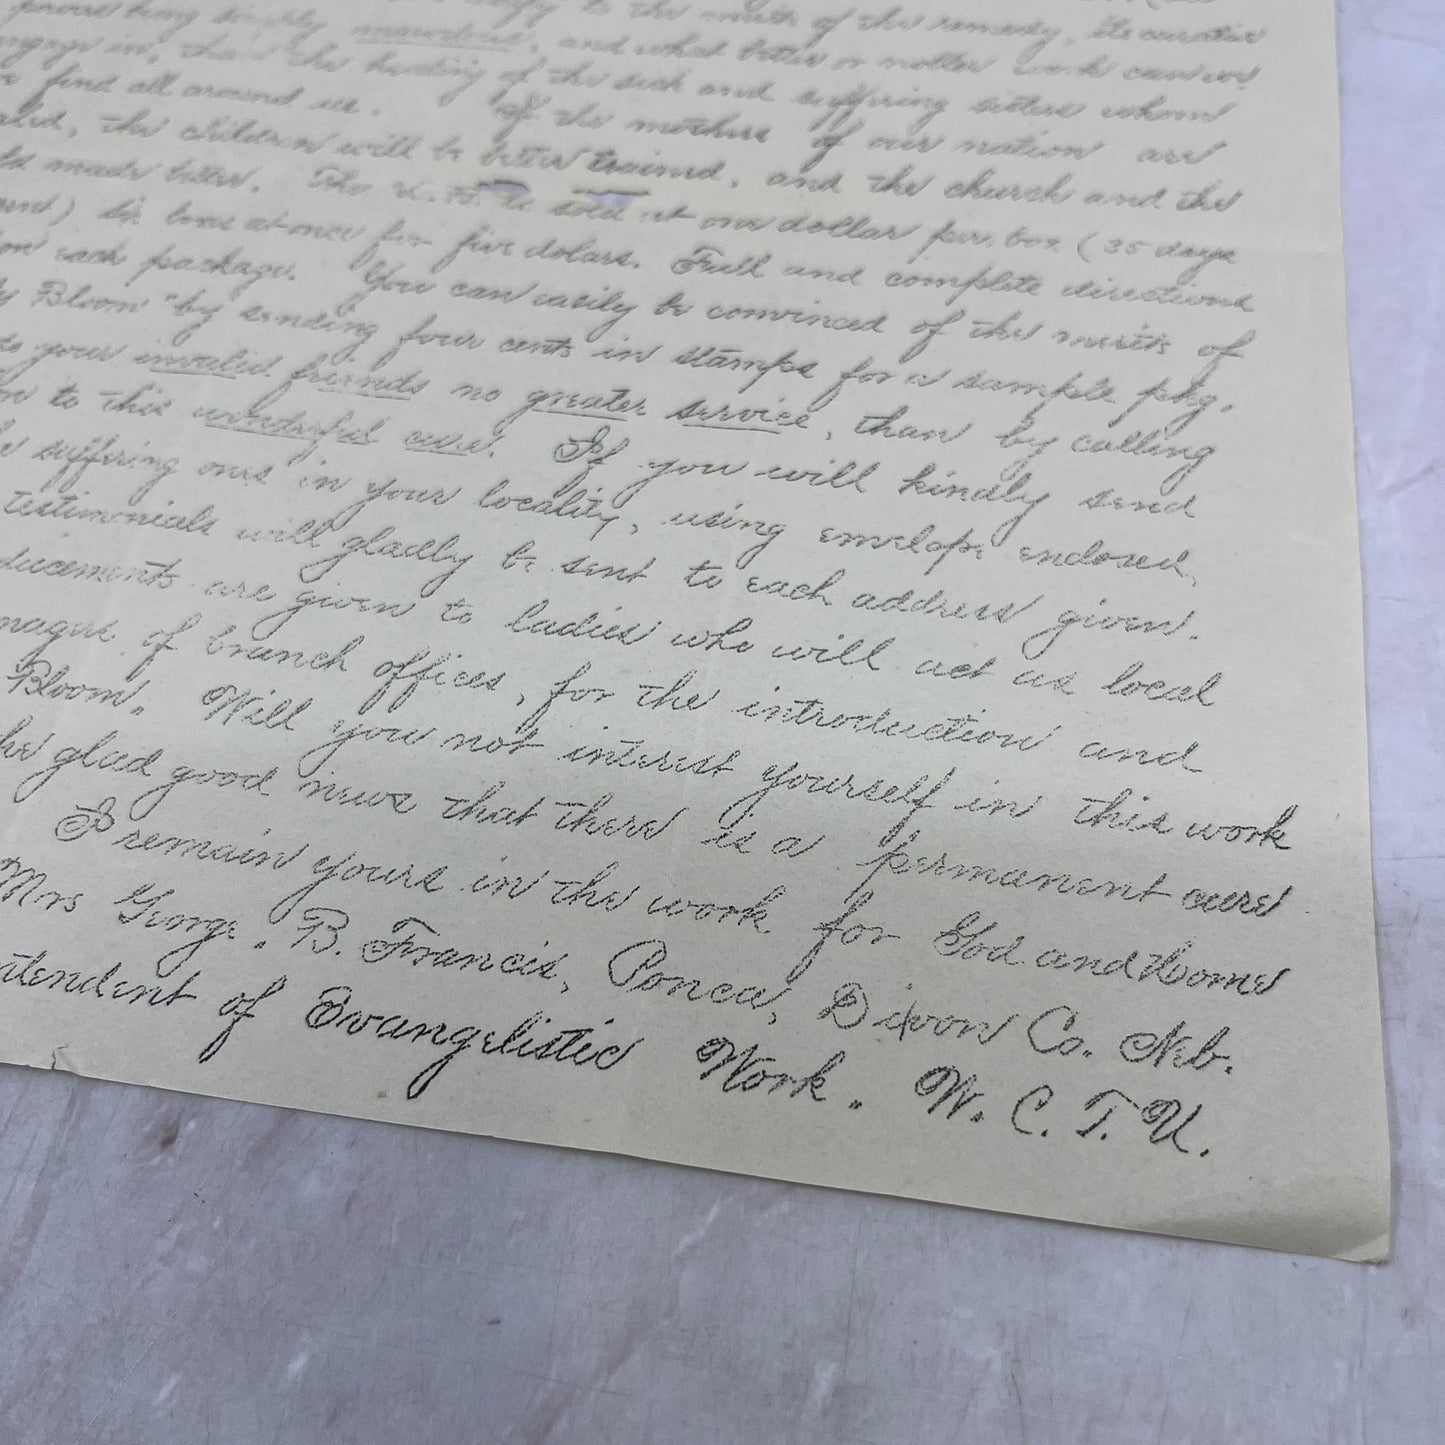 to the merits of the remedy, its curative
simply marvelous, and what better or nobler work can we
engage in, than the healing of the sick and suffering sisters whom
find all around us. If the mothers of our nation are
the children will be better trained, and the church and the
made better. The is sold at one dollar per. box (35 days
six boxes at once for five dolars. Full and complete directions
on each package. You can easily be convinced of the merits of
Bloom" by sending four cents in stamps for a sample pkg.
to your invalid friends no greater service, than by calling
to this wonderful cure. If you will kindly send
suffering ones in your locality, using envelope enclosed,
testimonials will gladly be sent to each address given.
ducements are given to ladies who will act as local
nagers of branch offices, for the introduction and
Bloom. Will you not interest yourself in this work
he glad good news that there is a permanent cure
I remain yours in the work for God and Home
Mrs George. B. Francis, Ponca, Dixon Co. Neb.
ntendent of Evangelistic Work. W. C. T. U.